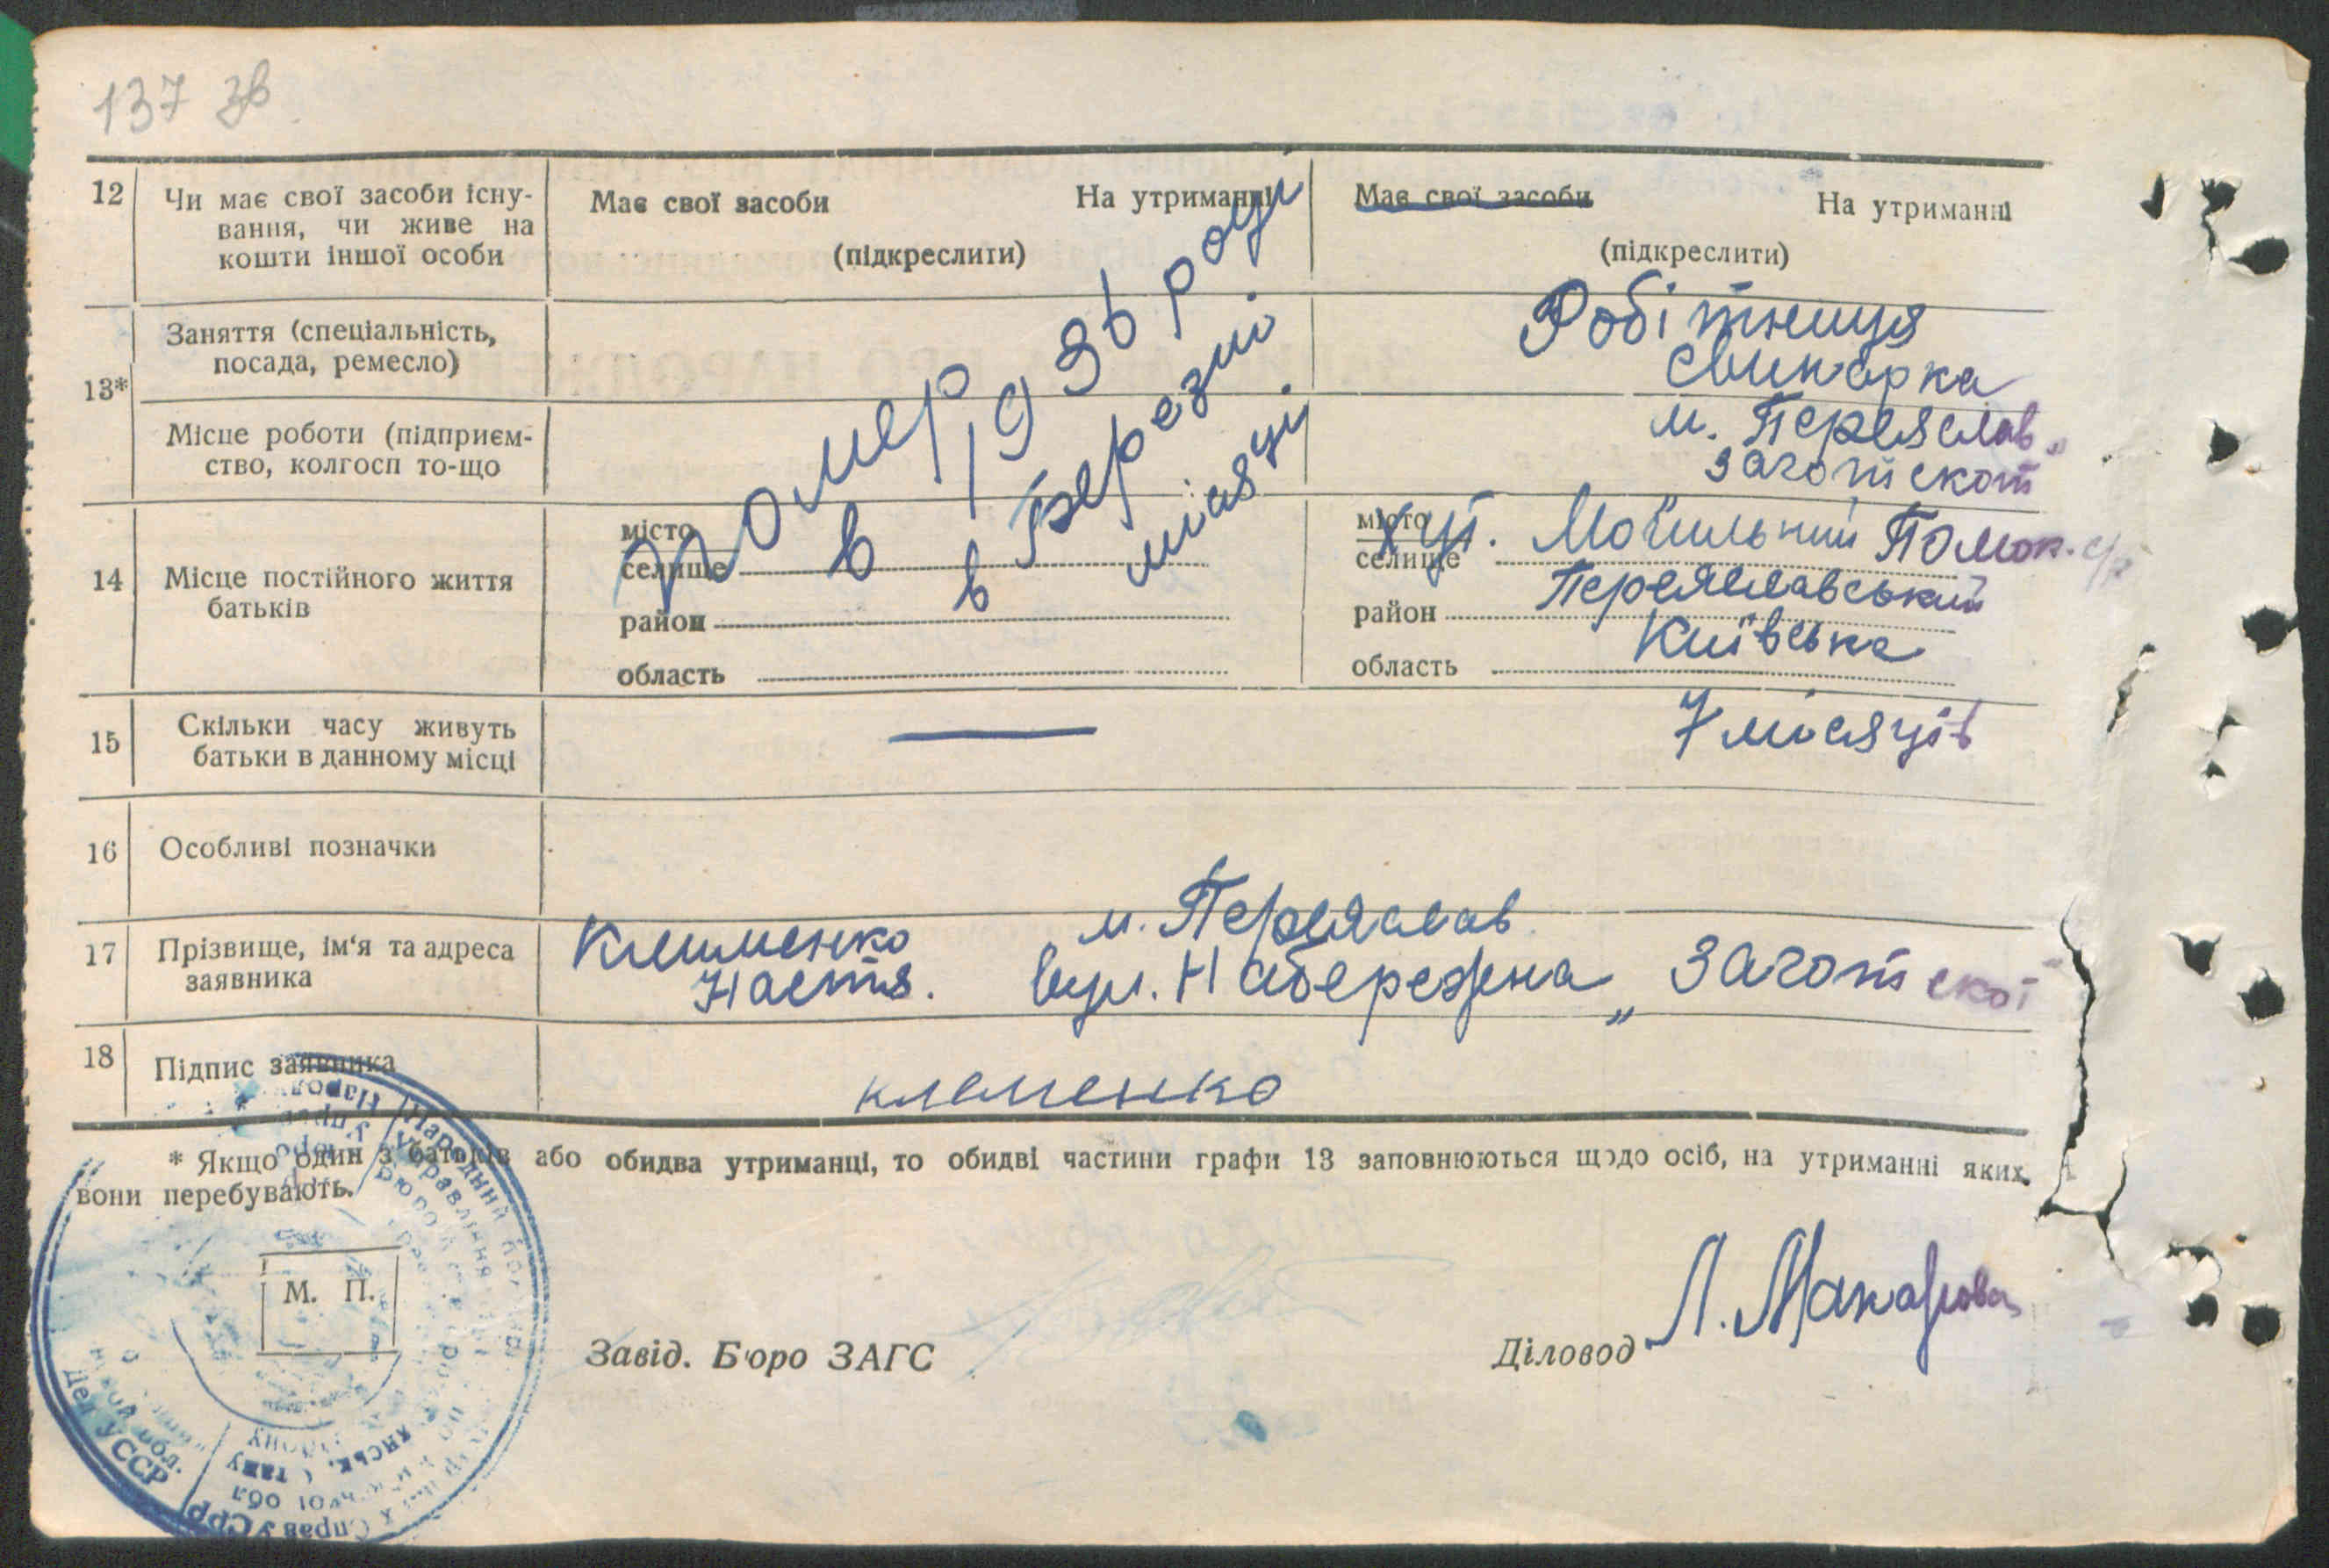 137 зв
12 Чи має свої засоби існу-
вання, чи живе на
кошти іншої особи
Має свої засоби На утриманні
(підкреслити)
Має свої засоби На утриманні
(підкреслити)
13*
Заняття (спеціальність,
посада, ремесло)
Робітниця
свинарка
Місце роботи (підприєм-
ство, колгосп то-що
м. Переяслав
"Заготскот
помер
в 1936 році
в березні
місяці
14 Місце постійного життя
батьків
місто
селище
район
область
місто
селище
хут. Помок. с/р
район Переяславський
область Київська
15 Скільки часу живуть
батьки в данному місці
— 7 місяців
16 Особливі позначки
17 Прізвище, ім'я та адреса
заявника
Клименко
Настя.
м. Переяслав
вул. Набережна „Заготскот
18 Підпис заявника
клеменко
* Якщо один з батьків або обидва утриманці, то обидві частини графи 13 заповнюються щодо осіб, на утриманні яких
вони перебувають.
М. П.
Завід. Бюро ЗАГС
Діловод Л. Макарова
УССР